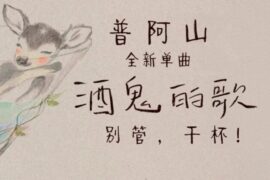 普阿山
全新单曲
酒鬼的歌
别管，干杯！